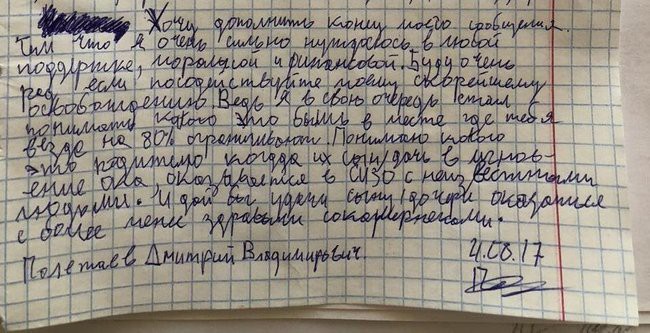 Хочу дополнить конец моего сообщения.
Тем что я очень сильно нуждаюсь в любой
поддержке, моральной и финансовой. Буду очень
рад если посодействуйте моему скорейшему
освобождению. Ведь я в свою очередь стал
понимать какого это быть в месте где тебя
везде на 80% ограничивают. Понимаю каково
это родителю когда их сын/дочь в мгнов-
ение ока оказывается в СИЗО с неизвестными
людьми. И дай бог удачи сыну/дочери оказаться
с более менее здравыми сокамерниками.
Полетаев Дмитрий Владимирович
4.08.17